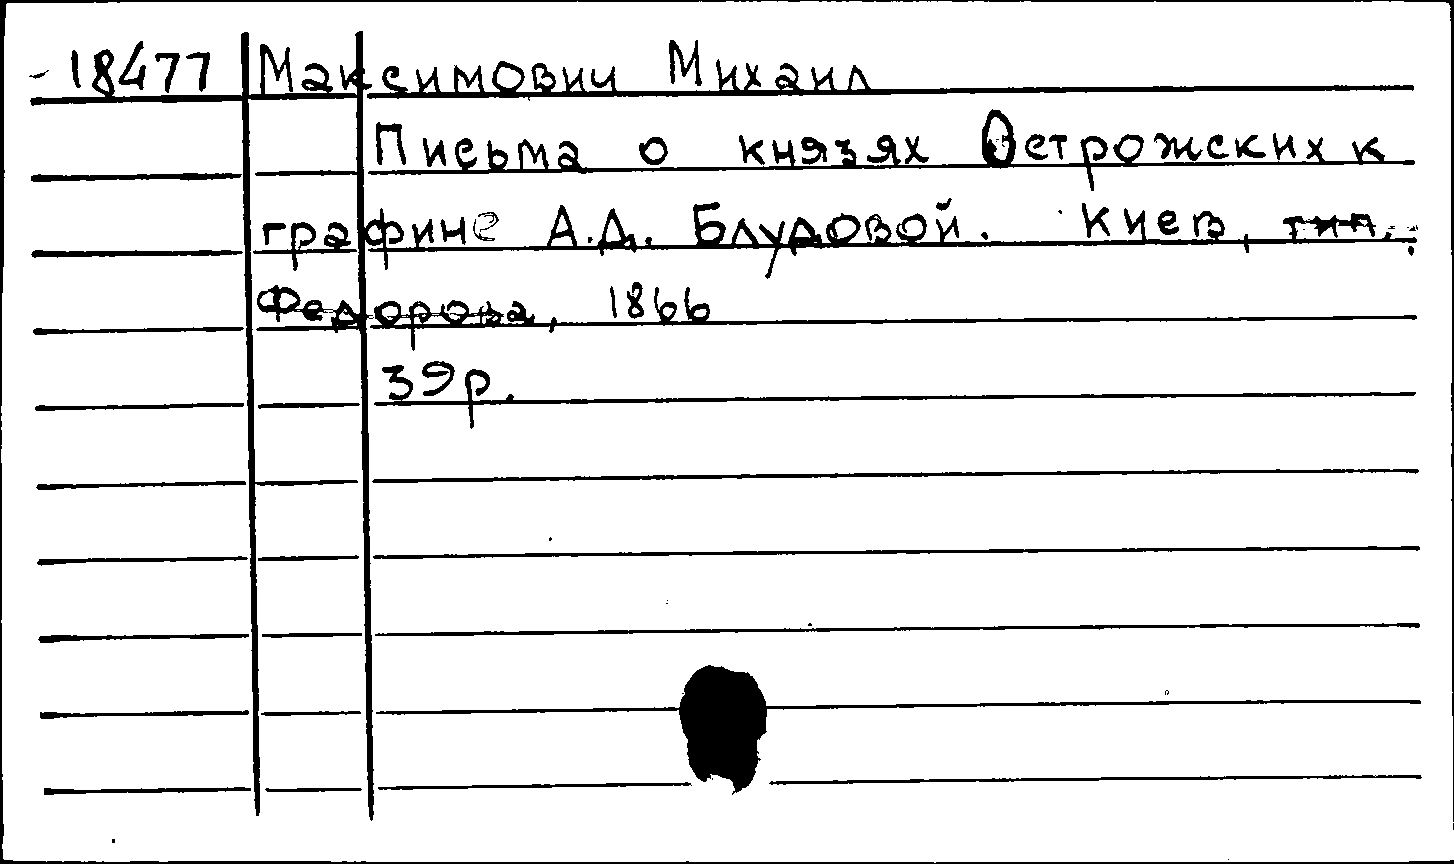 18477 Максимович Михаил
Письма о князях Острожских к
графине А.Д. Блудовой. Киев, тип.
Федорова, 1866
39р.